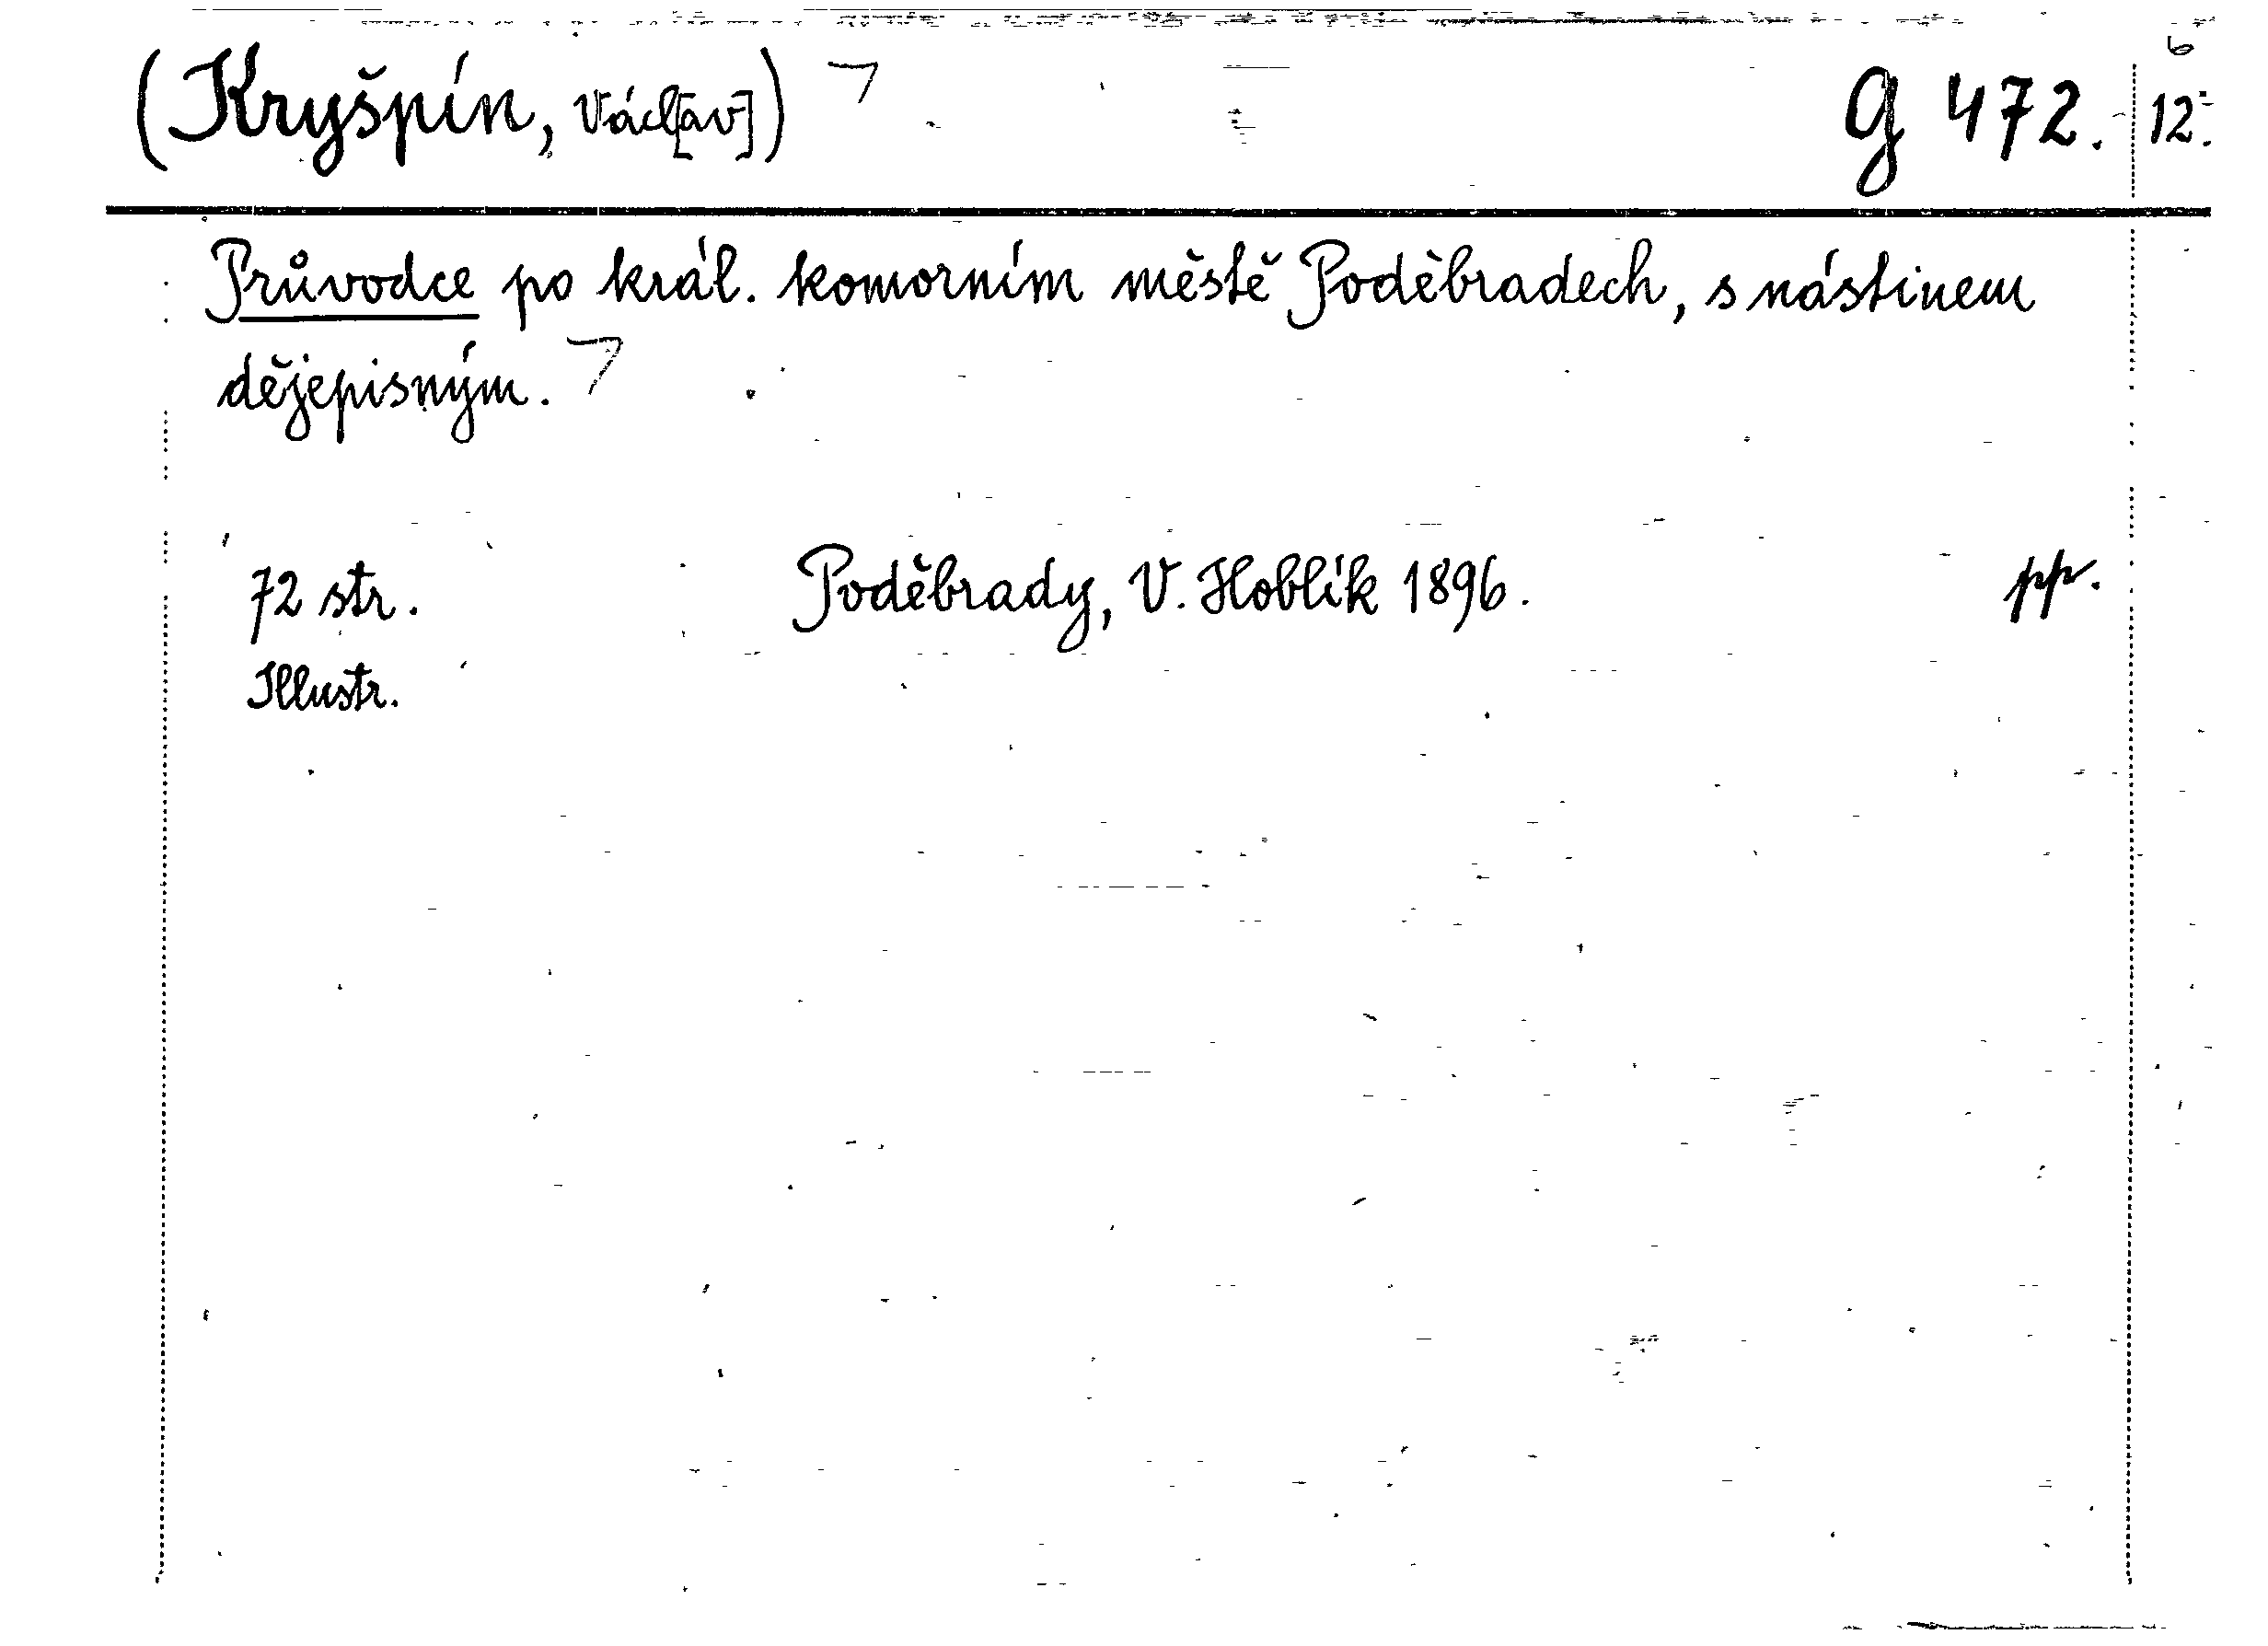 (Kryšpín, Václ[av]) G 472. 12.
Průvodce po král. komorním městě Poděbradech, s nástinem
dějepisným.
72 str. Poděbrady, V. Hoblík 1896. pp.
Illustr.